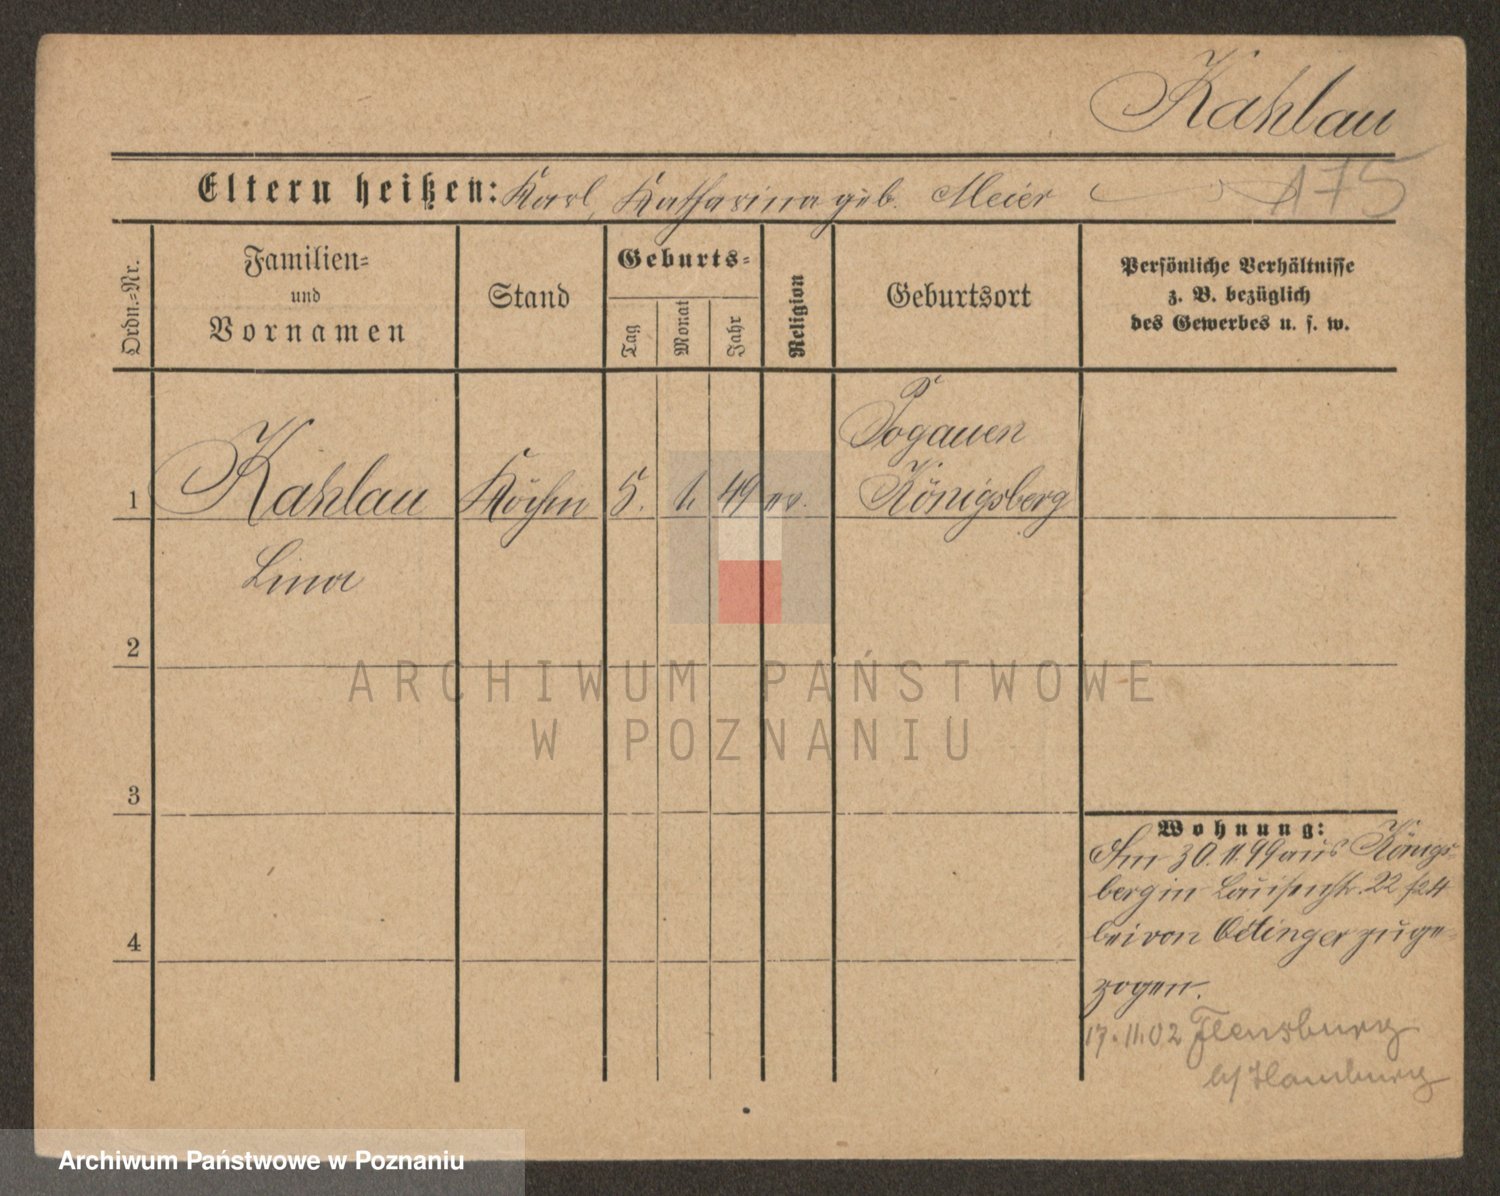 Kahlau
Eltern heißen: Karl, Katharina geb. Meier
175
Ordn.-Nr.
Familien-
und
Vornamen
Stand
Geburts-
Tag
Monat
Jahr
Religion
Geburtsort
Persönliche Verhältnisse
z. B. bezüglich
des Gewerbes u. s. w.
1 Kahlau Köchin 5. 1. 49 ev. Pogauen
Königsberg
Lina
2
3
4
Wohnung:
Am 30.11.99 aus Königs-
berg in Louisenstr. 22 f24
bei von Oetinger zuge-
zogen.
17.11.02 Flensburg
b/Hamburg
ARCHIWUM PAŃSTWOWE
W POZNANIU
Archiwum Państwowe w Poznaniu